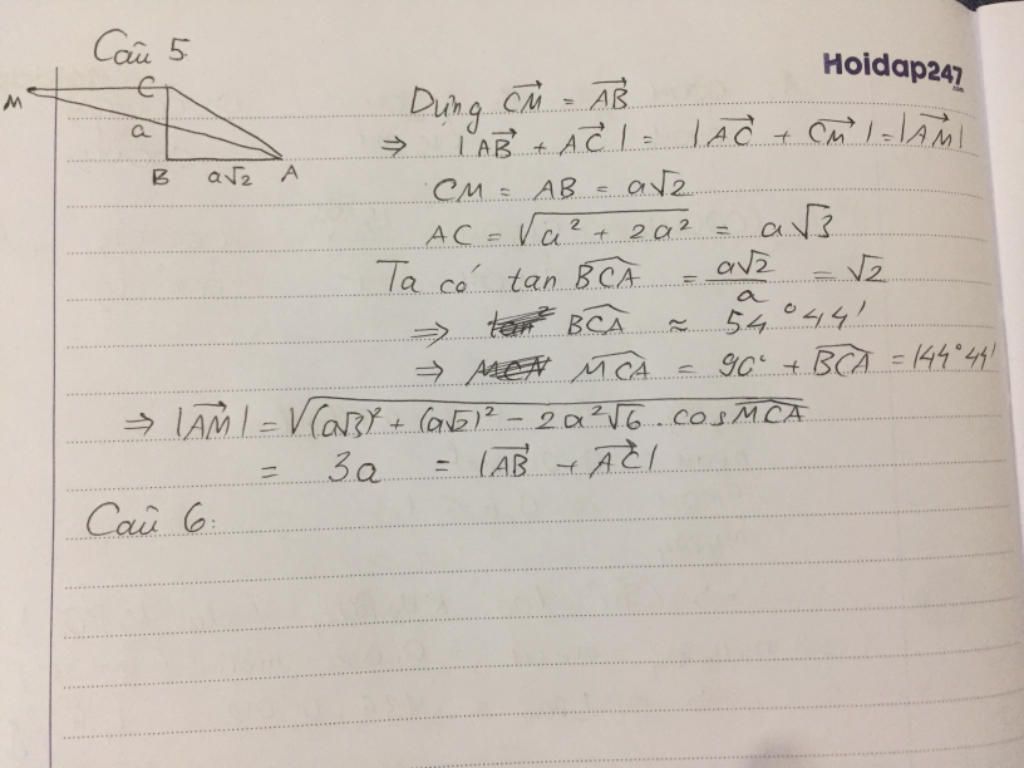 Câu 5
Hoidap247
.com
M
C
a
B
a√2
A
Dựng CM→ = AB→
⇒ |AB→ + AC→| = |AC→ + CM→| = |AM→|
CM = AB = a√2
AC = √(a² + 2a²) = a√3
Ta có tan BCA = a√2/a = √2
⇒ BCA ≈ 54°44'
⇒ MCA = 90° + BCA = 144°44'
⇒ |AM→| = √((a√3)² + (a√2)² − 2a²√6 . cosMCA)
= 3a = |AB→ + AC→|
Câu 6: